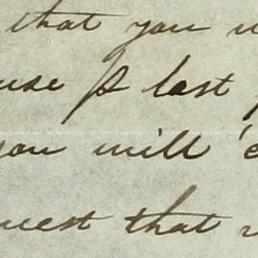 that you
use last
you will
uest that